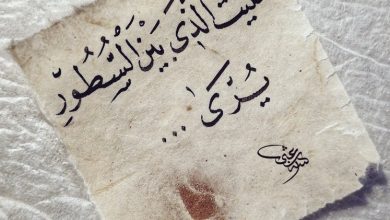 ليت الذي بَيْنَ السُّطُورِ
يُرَى ...